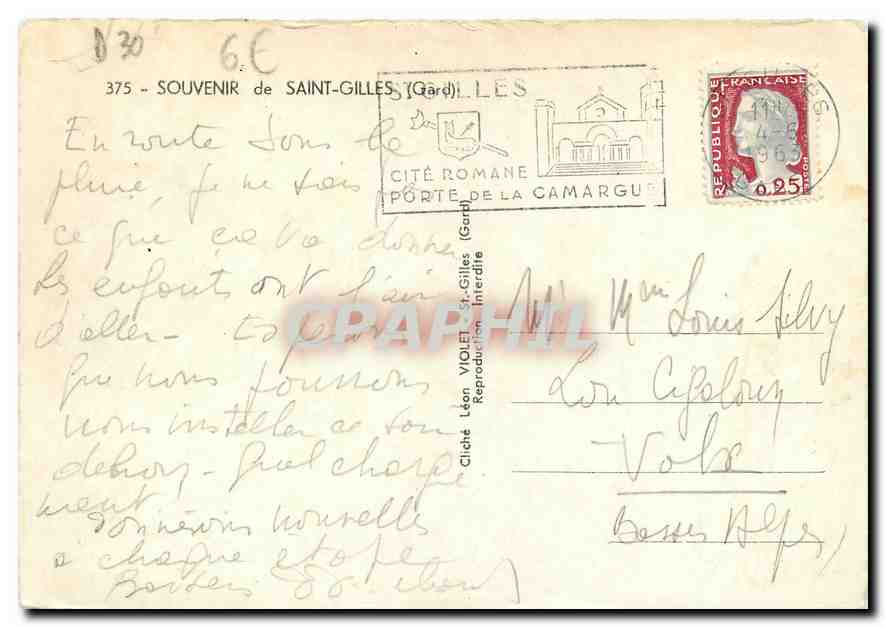 D 30 6€
375 - SOUVENIR de SAINT-GILLES (Gard)
ST GILLES
CITÉ ROMANE
PORTE DE LA CAMARGUE
REPUBLIQUE FRANÇAISE
POSTES
0,25F
11H
4-6
1963
En route sous la
pluie, je ne sais
ce que ça va donner
Les enfants ont l'air
d'aller - Espérons
que nous pourrons
nous installer ce soir
dehors - Quel charge
ment
Donnerons nouvelles
à chaque étape
Baisers
Cliché Léon VIOLET - St-Gilles (Gard)
Reproduction Interdite
CPAPHIL
Mr Mme Louis Silvy
Lou Cigaloun
Volx
Basses Alpes